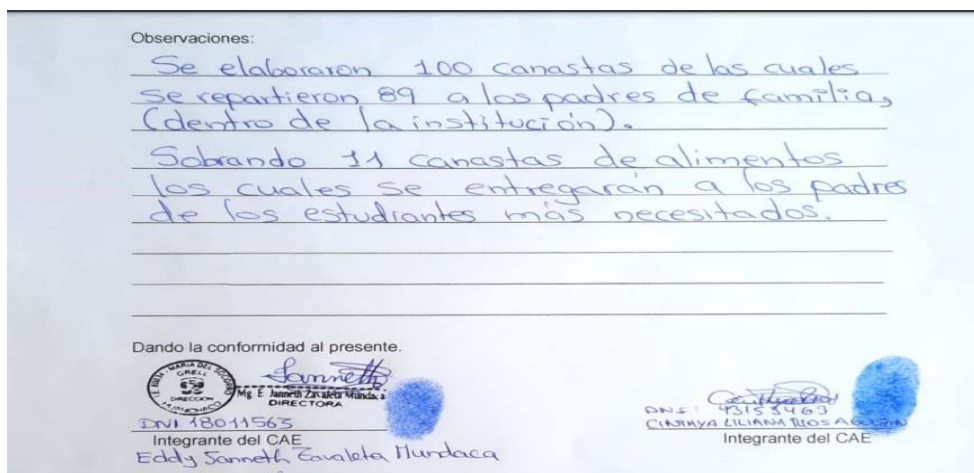 Observaciones:
Se elaboraron 100 canastas de las cuales
se repartieron 89 a los padres de familia,
(dentro de la institución).
Sobrando 11 canastas de alimentos
los cuales se entregarán a los padres
de los estudiantes más necesitados.
Dando la conformidad al presente.
MARIA DEL SOCORRO
GRELL
DIRECCION
HUANCHACO
Janneth
Mg. E Janneth Zavaleta Mundaca
DIRECTORA
DNI 18011563
Integrante del CAE
Eddy Janneth Zavaleta Mundaca
DNI: 43153463
LILIANA RIOS
Integrante del CAE